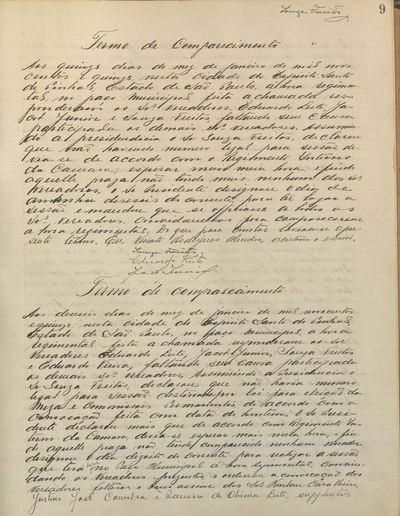 Souza Freitas
9
Termo de Comparecimento
Aos quinze dias do mez de janeiro de mil nove
centos e quinze nesta cidade do Espirito Santo
do Pinhal, Estado de São Paulo, a hora regimen
tal, no paço Municipal, feita a chamada res
ponderam os Srs. Vereadores Eduardo Leite, Ja
cob Junior e Souza Freitas, faltando sem causa
participada os demais Srs. Vereadores. Assumin
do a presidencia o Sr. Souza Freitas, declarou
que não havendo numero legal para sessão de
via-se de accordo com o Regimento Interno
da Camara esperar mais meia hora e findo
aquelle prazo não tendo mais nenhum dos Srs.
Vereadores, o Sr. Presidente designou o dia de
amanhan deseseis do corrente para ter logar a
sessão e mandou que se officiasse a todos os
Srs. Vereadores, convidando-os para comparecerem
a hora regimental. Do que para constar lavrou-se o pre
sente termo. Eu, Rodrigues Mendes, secretario o escrevi.
Souza Freitas
Eduardo Leite
Jacob Junior
Termo de comparecimento
Aos deseseis dias do mez de janeiro de mil novecentos
e quinze, nesta cidade do Espirito Santo do Pinhal,
Estado de São Paulo, no paço Municipal, a hora
regimental, feita a chamada responderam os Srs.
Vereadores Eduardo Leite, Jacob Junior, Souza Freitas
e Eduardo Vieira, faltando sem causa participada
os demais Srs. Vereadores. Assumindo a Presidencia o
Sr. Souza Freitas, declarou que não havia numero
legal para sessão destinada por lei para eleição da
Mesa e Commissões Permanentes de accordo com a
convocação feita com data de hontem. O Sr. Presi
dente declarou mais que de accordo com Regimento In
terno da Camara, devia se esperar mais meia hora, fin
do aquelle prazo não tendo comparecido nenhum vereador
designou o dia dezoito do corrente para realizar a sessão
que terá no Paço Municipal á hora regimental, convi
dando os Vereadores e a convocação dos
Vereadores
Justino José Coimbra e Leite, supplentes